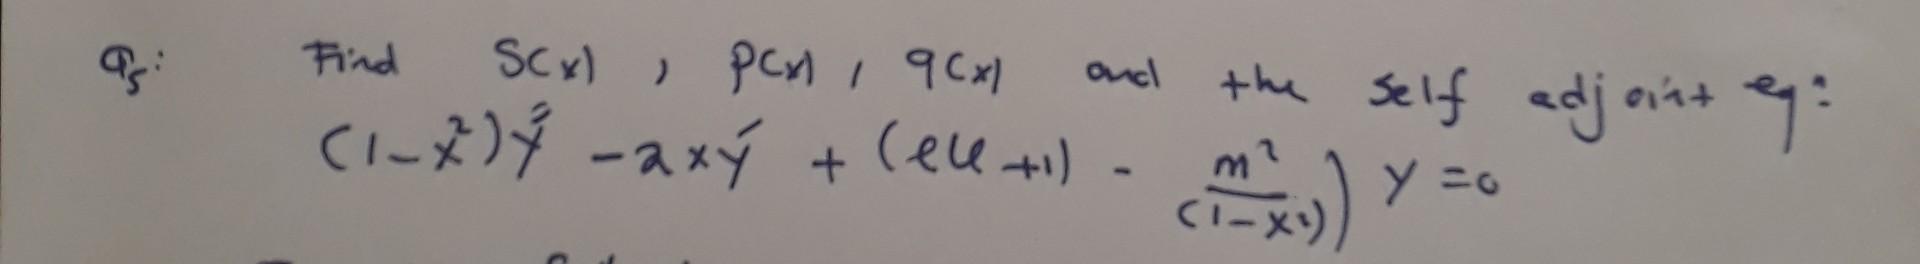 Q5: Find S(x), p(x), q(x) and the self adjoint eq:
(1-x²)y″ - 2xy′ + (l(l+1) - m²/(1-x²)) y = 0